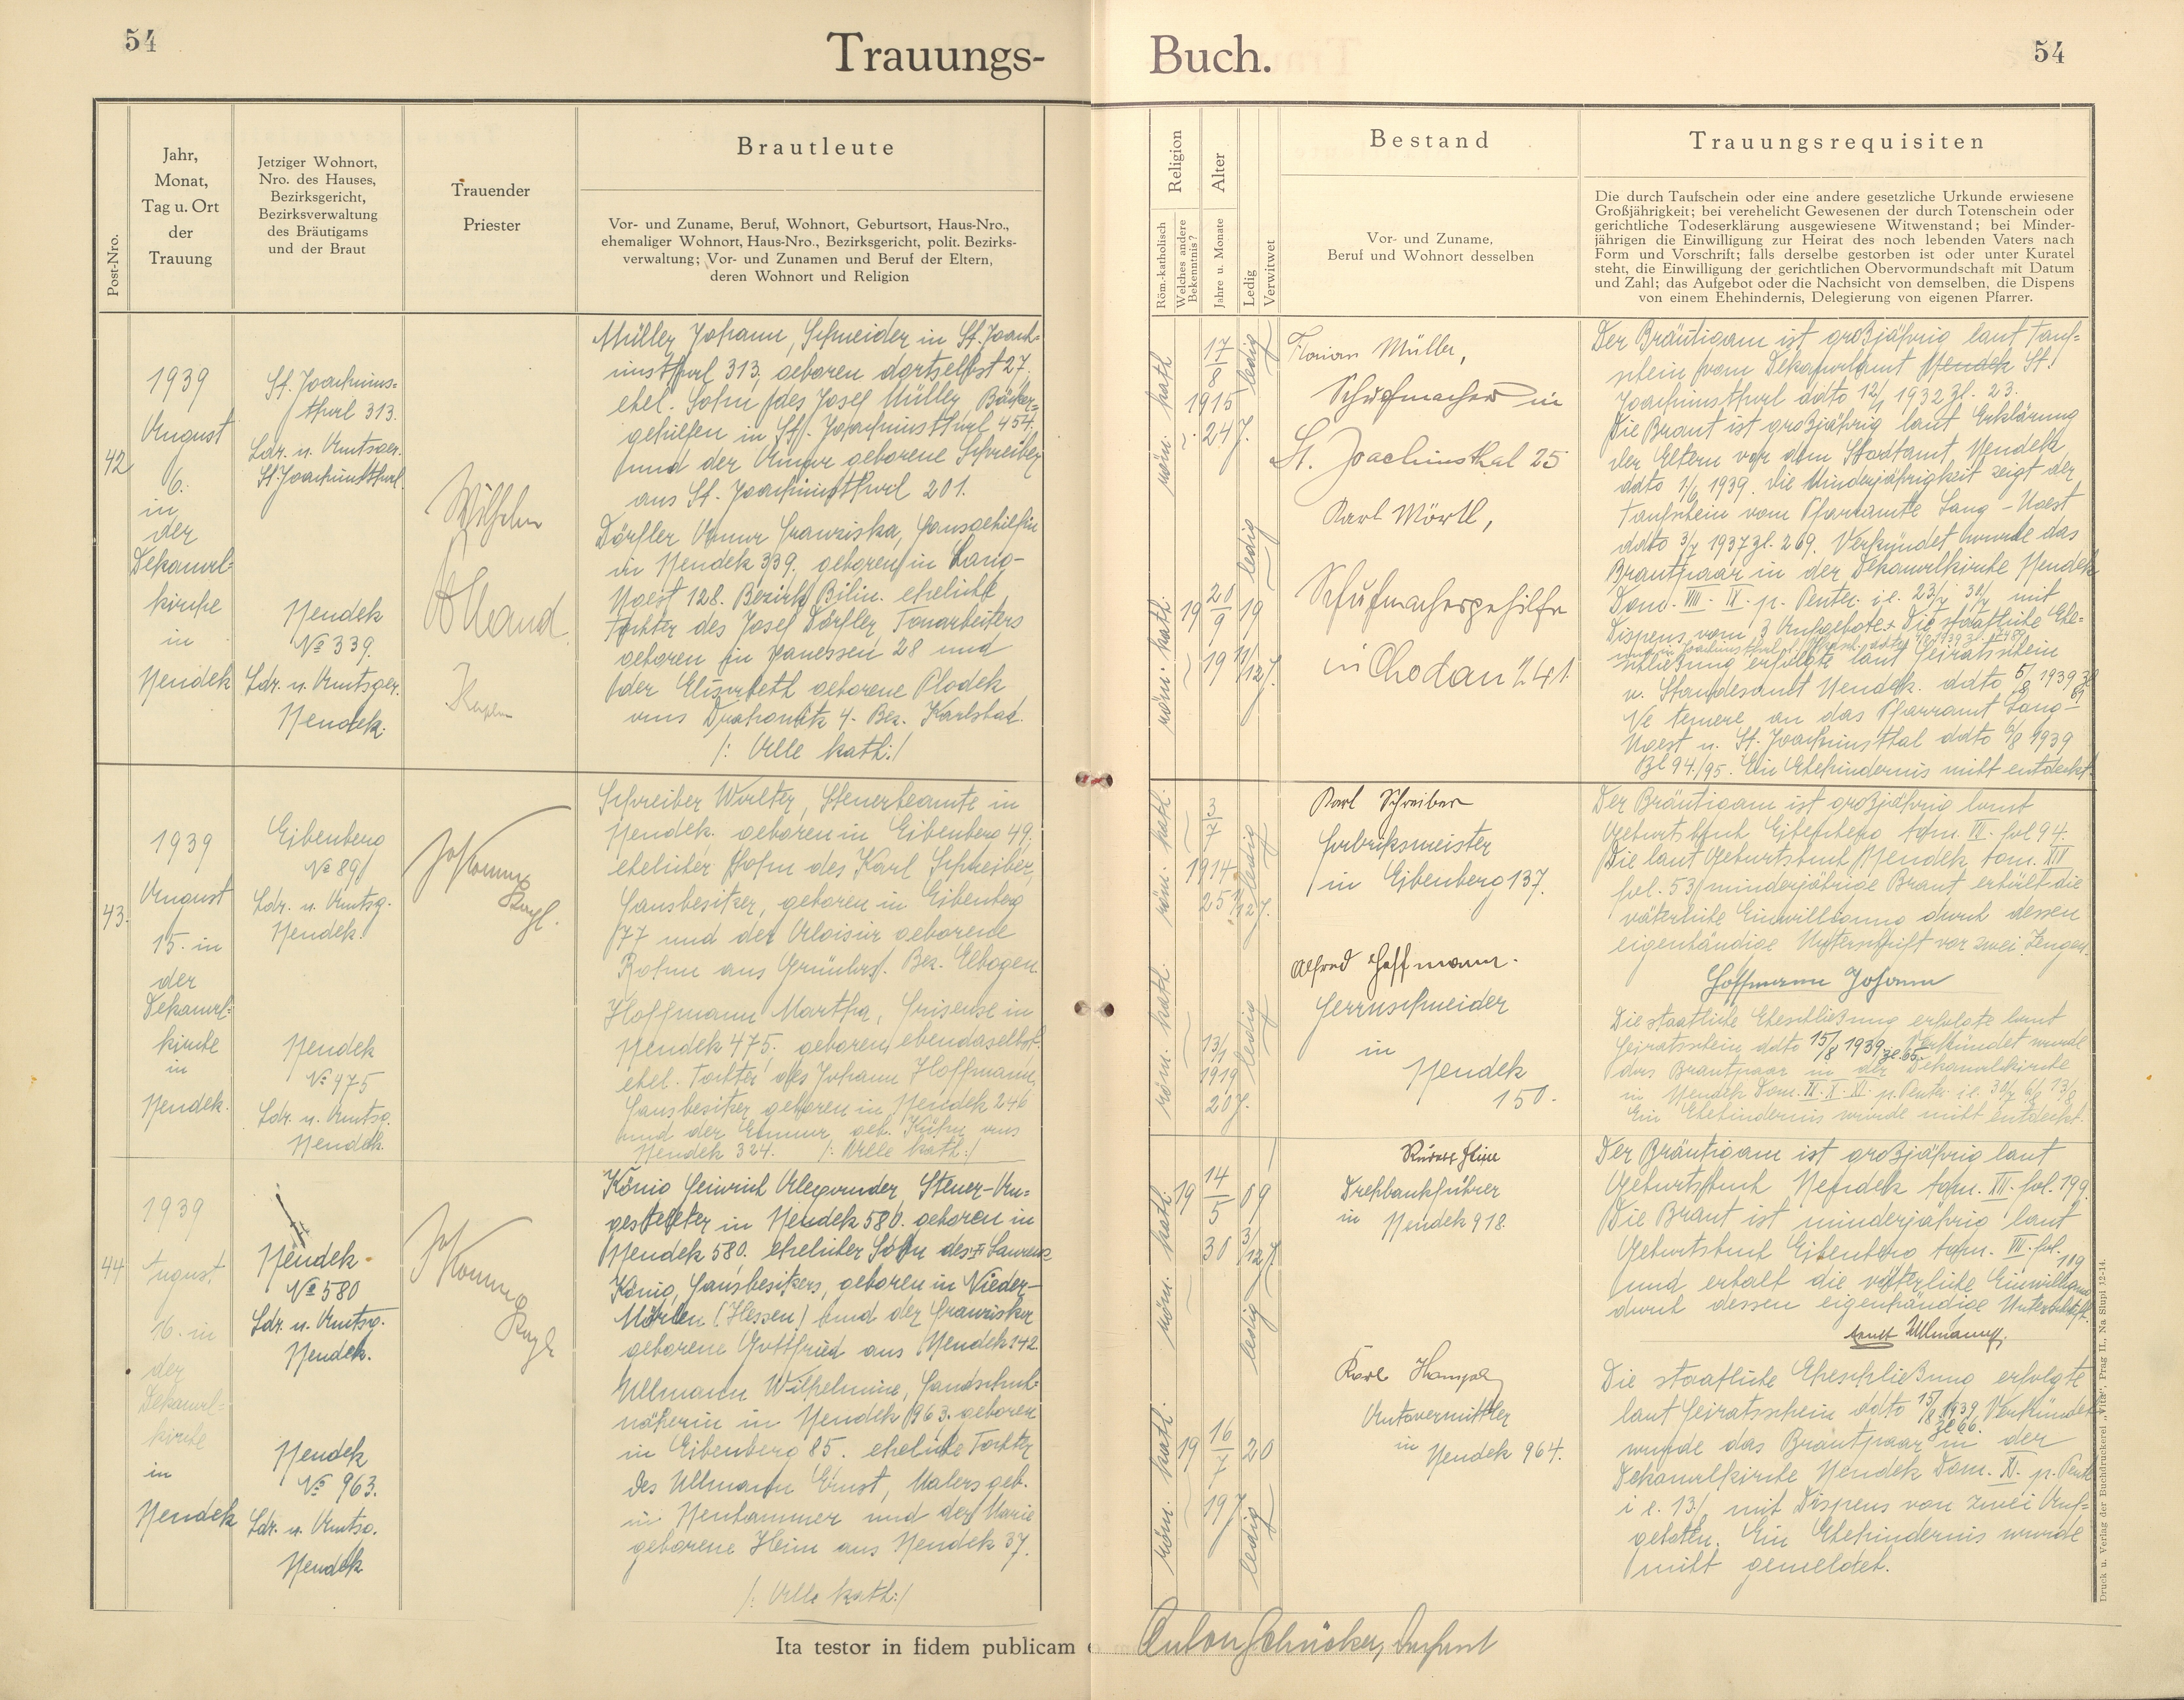 54
Trauungs-
Buch.
54
Post-Nro.
Jahr,
Monat,
Tag u. Ort
der
Trauung
Jetziger Wohnort,
Nro. des Hauses,
Bezirksgericht,
Bezirksverwaltung
des Bräutigams
und der Braut
Trauender
Priester
Brautleute
Vor- und Zuname, Beruf, Wohnort, Geburtsort, Haus-Nro.,
ehemaliger Wohnort, Haus-Nro., Bezirksgericht, polit. Bezirks-
verwaltung; Vor- und Zunamen und Beruf der Eltern,
deren Wohnort und Religion
Religion
Röm.-katholisch
Welches andere
Bekenntnis?
Alter
Jahre u. Monate
Ledig
Verwitwet
Bestand
Vor- und Zuname,
Beruf und Wohnort desselben
Trauungsrequisiten
Die durch Taufschein oder eine andere gesetzliche Urkunde erwiesene
Großjährigkeit; bei verehelicht Gewesenen der durch Totenschein oder
gerichtliche Todeserklärung ausgewiesene Witwenstand; bei Minder-
jährigen die Einwilligung zur Heirat des noch lebenden Vaters nach
Form und Vorschrift; falls derselbe gestorben ist oder unter Kuratel
steht, die Einwilligung der gerichtlichen Obervormundschaft mit Datum
und Zahl; das Aufgebot oder die Nachsicht von demselben, die Dispens
von einem Ehehindernis, Delegierung von eigenen Pfarrer.
42
1939
August
6.
in
der
Dekanal-
kirche
in
Neudek
St. Joachims-
thal 313.
Ldr. u. Amtsger.
St. Joachimsthal
Neudek
No 339.
Ldr. u. Amtsger.
Neudek.
Wilhelm
Kaplan
Müller Johann, Schneider in St. Joach-
imsthal 313, geboren dortselbst 27.
ehel. Sohn des Josef Müller, Bäcker-
gehilfen in St. Joachimsthal 454.
und der Anna geborene Schreiber
aus St. Joachimsthal 201.
Dörfler Anna Franziska, Hausgehilfin
in Neudek 339. geboren in Lang-
Ugest 128. Bezirk Bilin. eheliche
Tochter des Josef Dörfler, Tonarbeiters
geboren in Janessen 28 und
der Elisabeth geborene Plodek
aus Drahowitz 4. Bez. Karlsbad.
/: Alle kath:/
röm. kath.
17
8
1915
24 J.
ledig
röm. kath.
19 20/9 19
19 11/12 J.
ledig
Florian Müller,
Schuhmacher in
St. Joachimsthal 25
Karl Mörtl,
Schuhmachergehilfe
in Chodau 741
Der Bräutigam ist großjährig laut Tauf-
schein vom Dekanalamt Neudek St.
Joachimsthal ddto 12/1 1932 Zl. 23.
Die Braut ist großjährig laut Erklärung
der Eltern vor dem Stadtamt Neudek
ddto 1/6 1939. Die Minderjährigkeit zeigt der
Taufschein vom Pfarramte Lang-Ugest
ddto 3/7 1937 Zl. 269. Verkündet wurde das
Brautpaar in der Dekanalkirche Neudek
Dom. VIII. IX. p. Pentec. i.e. 23/7 30/7 mit
Dispens vom 3 Aufgebote. Die staatliche Ehe-
schließung erfolgte laut Heiratsschein
v. Standesamt Neudek. ddto 5/8 1939 Zl 61
Ne temere an das Pfarramt Lang-
Ugest u. St. Joachimsthal ddto 6/8 1939
Zl 94/95. Ein Ehehindernis nicht entdeckt.
43.
1939
August
15. in
der
Dekanal-
kirche
in
Neudek.
Eibenberg
No 89
Ldr. u. Amtsg.
Neudek.
Neudek
No 475
Ldr. u. Amtsg.
Neudek.
Schreiber Walter, Steuerbeamte in
Neudek. geboren in Eibenberg 49.
ehelicher Sohn des Karl Schreiber,
Hausbesitzer, geboren in Eibenberg
77 und der Aloisia geborene
aus Grünlas. Bez. Elbogen.
Hoffmann Martha, Friseuse in
Neudek 475. geboren ebendaselbst.
ehel. Tochter des Johann Hoffmann,
Hausbesitzer geboren in Neudek 246
und der Emma geb. Kühn aus
Neudek 324. /: Alle kath:/
röm. kath.
3
7
1914
25 1/12 J.
ledig
röm. kath.
13/1
1919
20 J.
ledig
Karl Schreiber
Fabriksmeister
in Eibenberg 137.
Alfred Hoffmann.
Herrnschneider
in
Neudek
150.
Der Bräutigam ist großjährig laut
Geburtsbuch Eibenberg tom. VII. fol 94.
Die laut Geburtsbuch Neudek tom. XIV
fol. 53 minderjährige Braut erhält die
väterliche Einwilligung durch dessen
eigenhändige Unterschrift vor zwei Zeugen.
Hoffmann Johann
Die staatliche Eheschließung erfolgte laut
Heiratsschein ddto 15/8 1939 Zl. 65. Verkündet wurde
das Brautpaar in der Dekanalkirche
in Neudek Dom. IX. X. XI. p. Pentec. i.e. 30/7 6/8 13/8
Ein Ehehindernis wurde nicht entdeckt.
44
1939
August
16. in
der
Dekanal-
kirche
in
Neudek
Neudek
No 580
Ldr. u. Amtsg.
Neudek.
Neudek
No 963.
Ldr. u. Amtsg.
Neudek
König Heinrich Alexander, Steuer-An-
gestellter in Neudek 580. geboren in
Neudek 580. ehelicher Sohn des Laurenz
König, Hausbesitzers, geboren in Nieder-
Mörlen (Hessen) und der Franziska
geborene Gottfried aus Neudek 142.
Ullmann Wilhelmine, Handschuh-
näherin in Neudek 963. geboren
in Eibenberg 85. eheliche Tochter
des Ullmann Ernst, Malers geb.
in Neuhammer und der Marie
geborene Heim aus Neudek 37.
/: Alle kath:/
röm. kath.
19 14/5 09
30 3/12 J.
ledig
röm. kath.
19 16/7 20
19 J.
ledig
Rudolf Heim
Drehbankführer
in Neudek 918.
Karl Hampel
Autovermittler
in Neudek 964.
Der Bräutigam ist großjährig laut
Geburtsbuch Neudek tom. XII. fol. 199.
Die Braut ist minderjährig laut
Geburtsbuch Eibenberg tom. VII. fol. 119
und erhält die väterliche Einwilligung
durch dessen eigenhändige Unterschrift.
Ernst Ullmann.
Die staatliche Eheschließung erfolgte
laut Heiratsschein ddto 15/8 1939 Zl 66. Verkündet
wurde das Brautpaar in der
Dekanalkirche Neudek Dom. XI. p. Pente
i e. 13/8 mit Dispens von zwei Auf-
geboten. Ein Ehehindernis wurde
nicht gemeldet.
Ita testor in fidem publicam
Anton Dechant
Druck u. Verlag der Buchdruckerei „Vita", Prag II., Na Slupi 12-14.